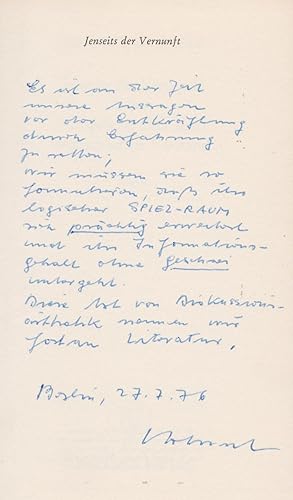 Jenseits der Vernunft
Es ist an der Zeit
unsere Aussagen
vor der Entkräftung
durch Erfahrung
zu retten;
wir müssen sie so
formulieren, daß ihr
logischer SPIEL-RAUM
sich prächtig erweitert
und ihr Informations-
gehalt ohne geschrei
untergeht.
Diese Art von Diskussions-
ästhetik nennen wir
fortan Literatur.
Berlin, 27.7.76